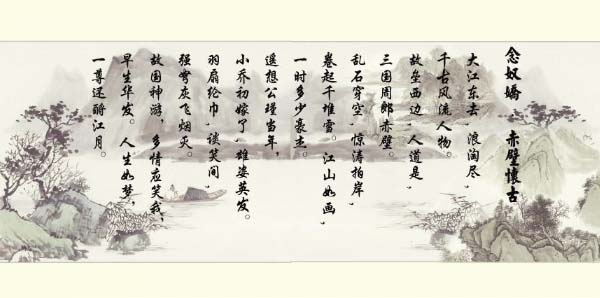 念奴嬌 赤壁懷古
大江东去，浪淘尽，
千古风流人物。
故垒西边，人道是，
三国周郎赤壁。
乱石穿空，惊涛拍岸，
卷起千堆雪。江山如画，
一时多少豪杰。
遥想公瑾当年，
小乔初嫁了，雄姿英发。
羽扇纶巾，谈笑间，
强虏灰飞烟灭。
故国神游，多情应笑我，
早生华发。人生如梦，
一尊还酹江月。